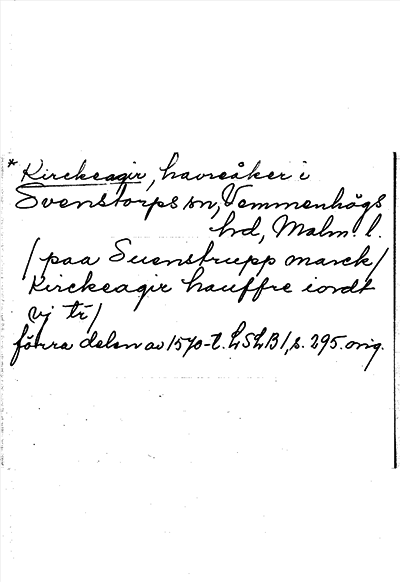 * Kirckeagir, havreåker i
Svenstorps sn, Vemmenhögs
hd, Malm. l.
/ paa Suenstrupp marck /
Kirckeagir hauffre iordt
vj tr /
förra delen av 1570-t. LSLB 1, s. 295. orig.